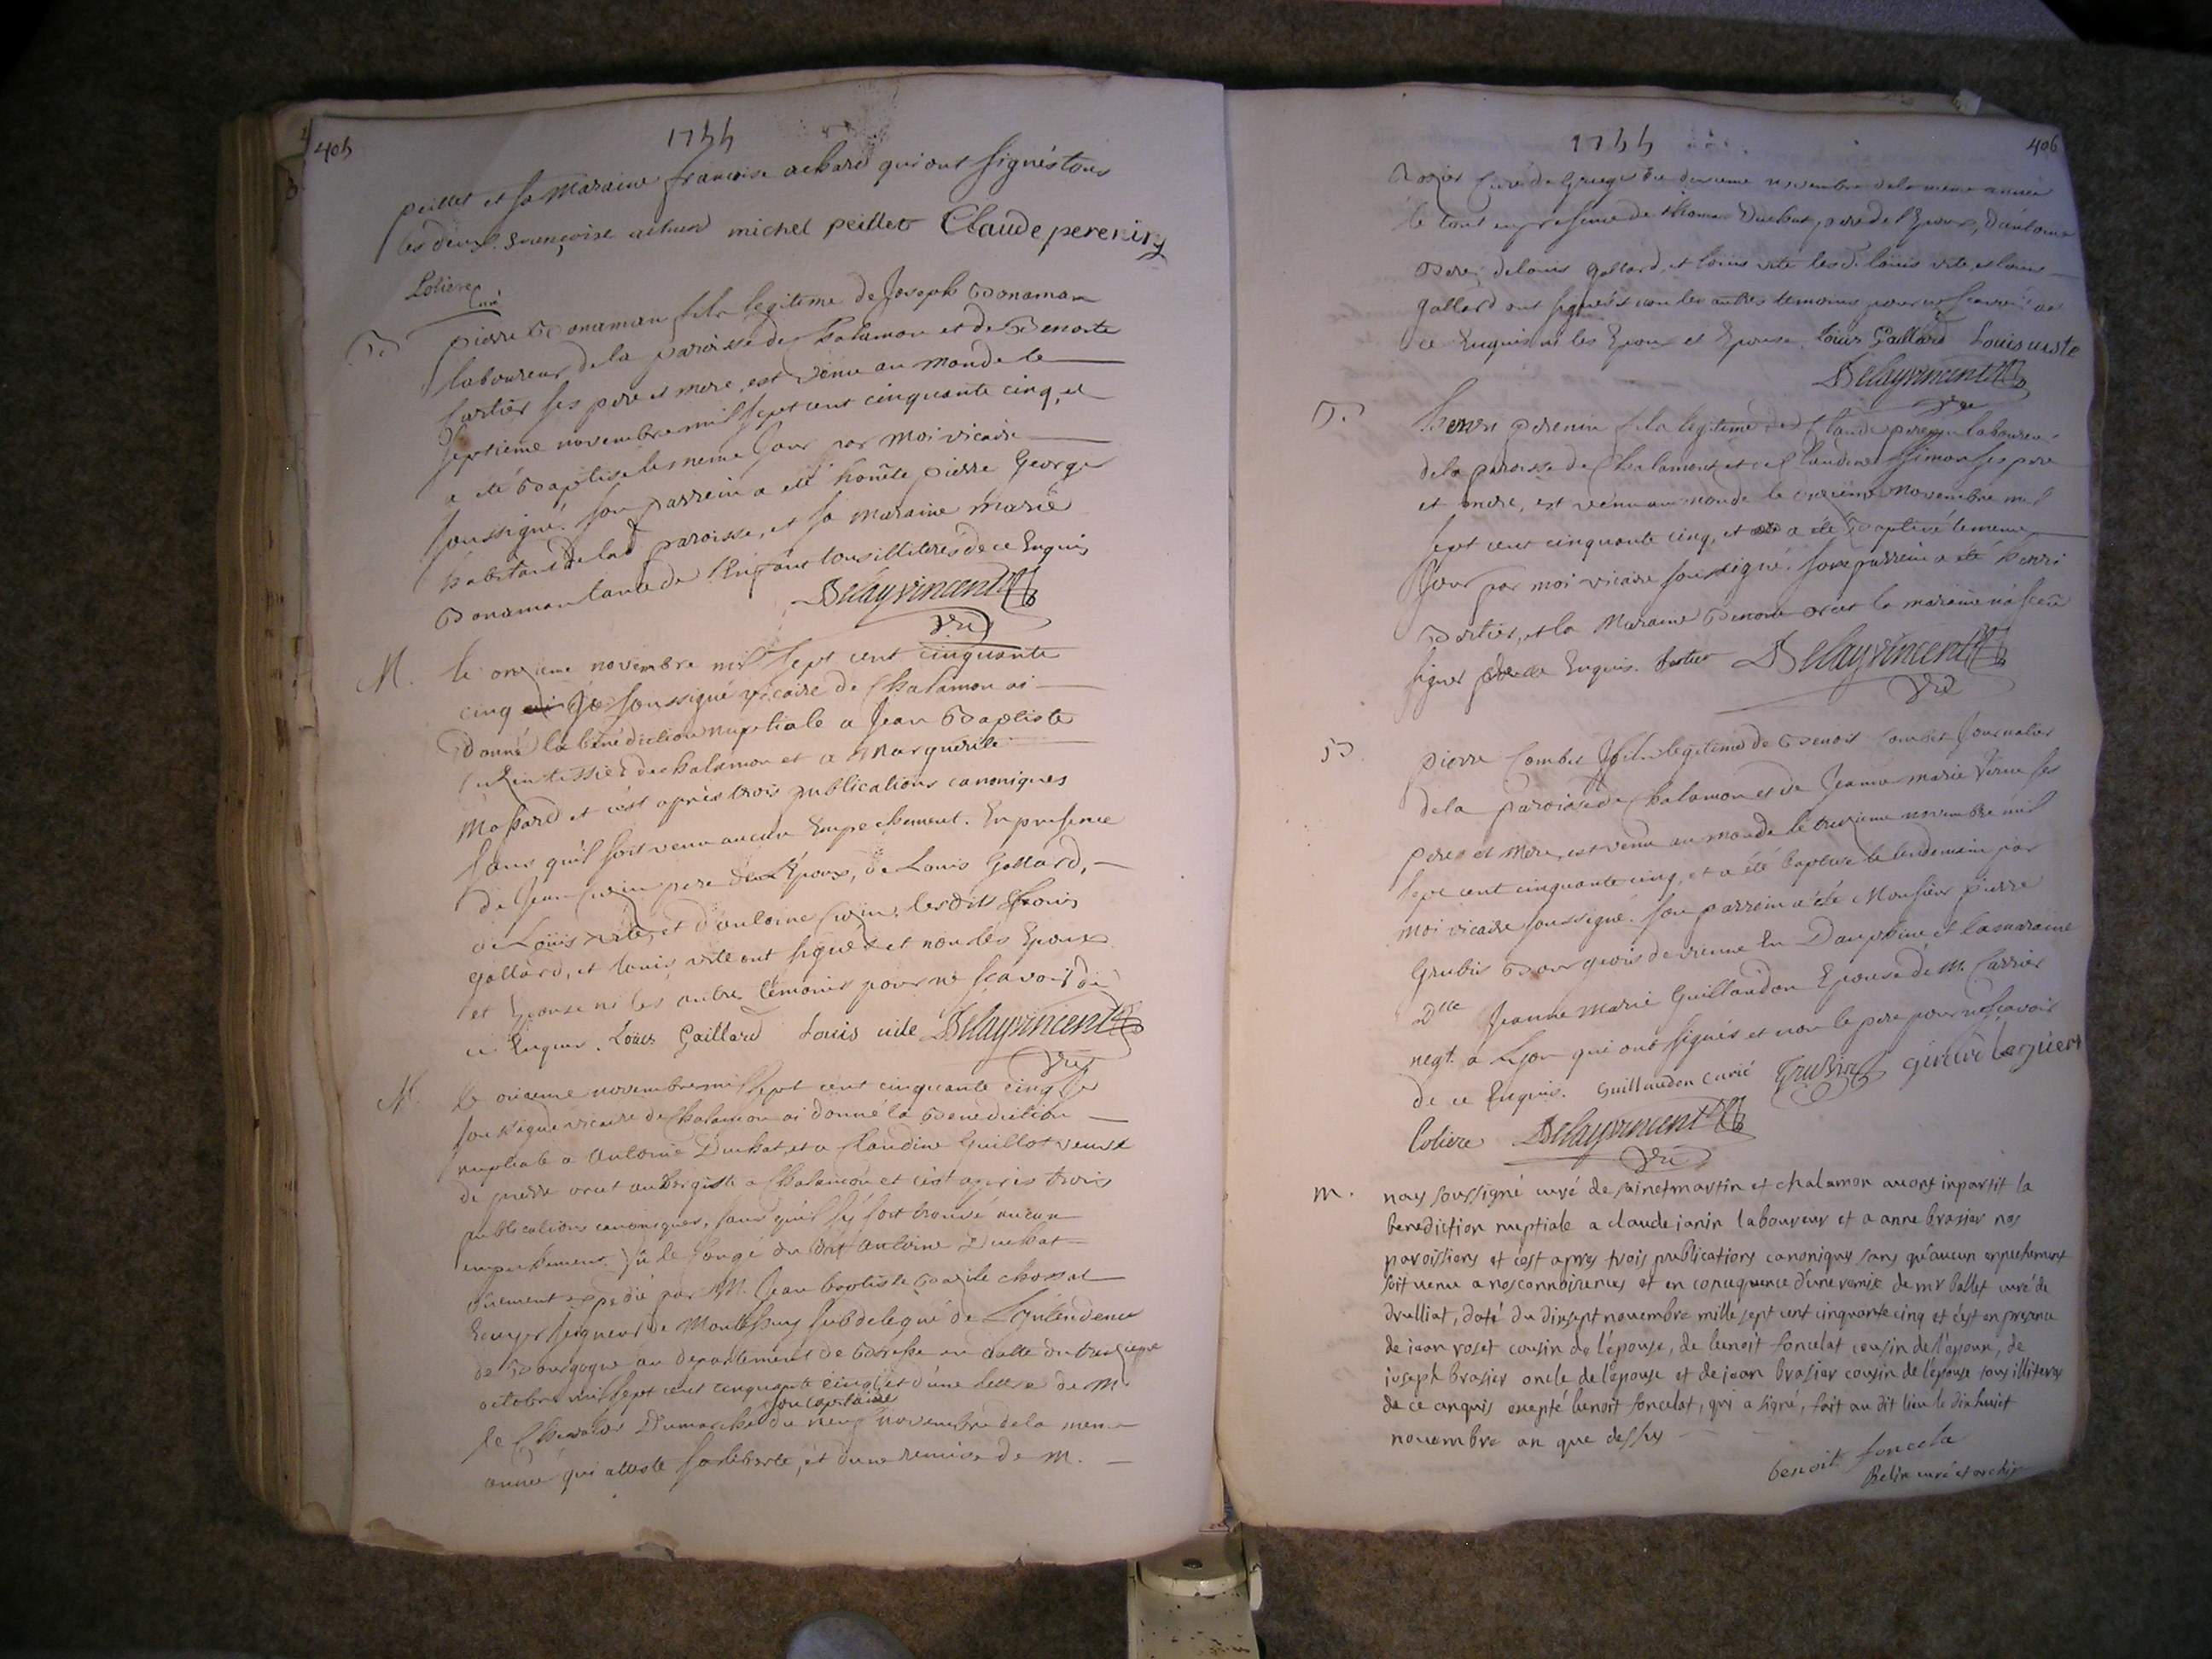 405
1755
peillet et sa Maraine francoise achard qui ont signés tous
les deux. françoise achard michel peillet Claude perenin
Loliere Curé
B pierre Bonaman fils legitime de Joseph Bonaman
laboureur de la paroisse de Chalamon et de Benoite
Sartier ses pere et mere, est venu au monde le
septieme novembre mil sept cent cinquante cinq, et
a été Baptisé le meme jour par moi vicaire
soussigné. son parrein a été honête pierre George
habitant de la de paroisse, et sa maraine marie
Bonaman tante de l'Enfant tous illiteres de ce Enquis
Delayvincent
vre
M. le onzieme novembre mil sept cent cinquante
cinq Je soussigné vicaire de Chalamon ai
Donné la bénédiction nuptiale a Jean Baptiste
de Chalamon et a Marguerite
et c'est après trois publications canoniques
sans qu'il soit venu aucun Empechement. En presence
de Jean pere de l'Epoux, de Louis Gallard,
de Loüis vite, et d'antoine les dits Louis
gallard, et louis vite ont signés et non les Epoux
et Epouse ni les autres témoins pour ne scavoir de
ce Enquis. Loüis Gaillard Louis uite Delayvincent
vre
M. le onzieme novembre mil sept cent cinquante cinq Je
soussigné vicaire de Chalamon ai donné la Benediction
nuptiale a antoine Duchat, et a Claudine Guillot veuve
de pierre orcet aubergiste a Chalamon et c'est après trois
publications canoniques, sans qu'il s'y soit trouvé aucun
empechement, vû le Congé du dit antoine Duchat
expedié par M. Jean baptiste Bazile chossat
Ecuyer seigneur de Montessuy subdelegué de L'Intendence
de Bourgogne au departement de Bresse en datte du treizieme
octobre mil sept cent cinquante cinq, et d'une lettre de M.
le Chevalier Dumarché son capitaine du neuf novembre de la meme
année qui atteste sa liberté, et d'une remise de M.
406
1755
Rozier Curé de Grieges du dixieme novembre de la meme année
le tout en presence de thomas Duchat, pere de l'Epoux, d'antoine
de louis gallard, et louis vite les d. louis vite, et louis
gallard ont signés et non les autres temoins pour ne scavoir de
ce Enquis ni les Epoux et Epouse. Louis Gaillard Louis uiste
Delayvincent
vre
B. henri perenin fils legitime de Claude perenin laboureur
de la paroisse de Chalamont et de Claudine Simon ses pere
et mere, est venu au monde le onzieme Novembre mil
sept cent cinquante cinq, et a été Baptisé le meme
jour par moi vicaire soussigné. son parrein a été henri
Sartier, et la Maraine Benoite orcet la maraine n'a sceu
signer de ce Enquis. Sartier Delayvincent
vre
B. pierre Combet fils legitime de Benoit Combet Journalier
de la paroisse de Chalamon et de Jeanne marie ses
peres et Mere, est venu au monde le treizieme novembre mil
sept cent cinquante cinq, et a été baptisé le lendemain par
moi vicaire soussigné. son parrein a été Monsieur pierre
Grubis Bourgeois de vienne En Dauphiné et la maraine
Dlle Jeanne Marie Guillaudon Epouse de M. Carrier
negt. a Lyon qui ont signés et non le pere pour ne scavoir
de ce Enquis. Guillaudon carié Grubis
Loliere Delayvincent
vre
m. nous soussigné curé de sainct martin et chalamon avons inpartit la
benediction nuptiale a claude janin laboureur et a anne brasier nos
paroissiens et c'est apres trois publications canoniques sans qu'aucun enpechement
soit venu a nos connoisences et en consequence d'une remise de mr Ballet curé de
drulliat, daté du dixsept novembre mille sept cent cinquante cinq et c'est en presence
de jean roset cousin de l'épouse, de benoit foncelat cousin de l'époux, de
joseph brasier oncle de l'epouse et de jean brasier cousin de l'epouse tous illiteres
de ce anquis exepté benoit foncelat, qui a signé, fait au dit lieu le dixhuict
novembre an que dessus
benoit foncela
curé et archip